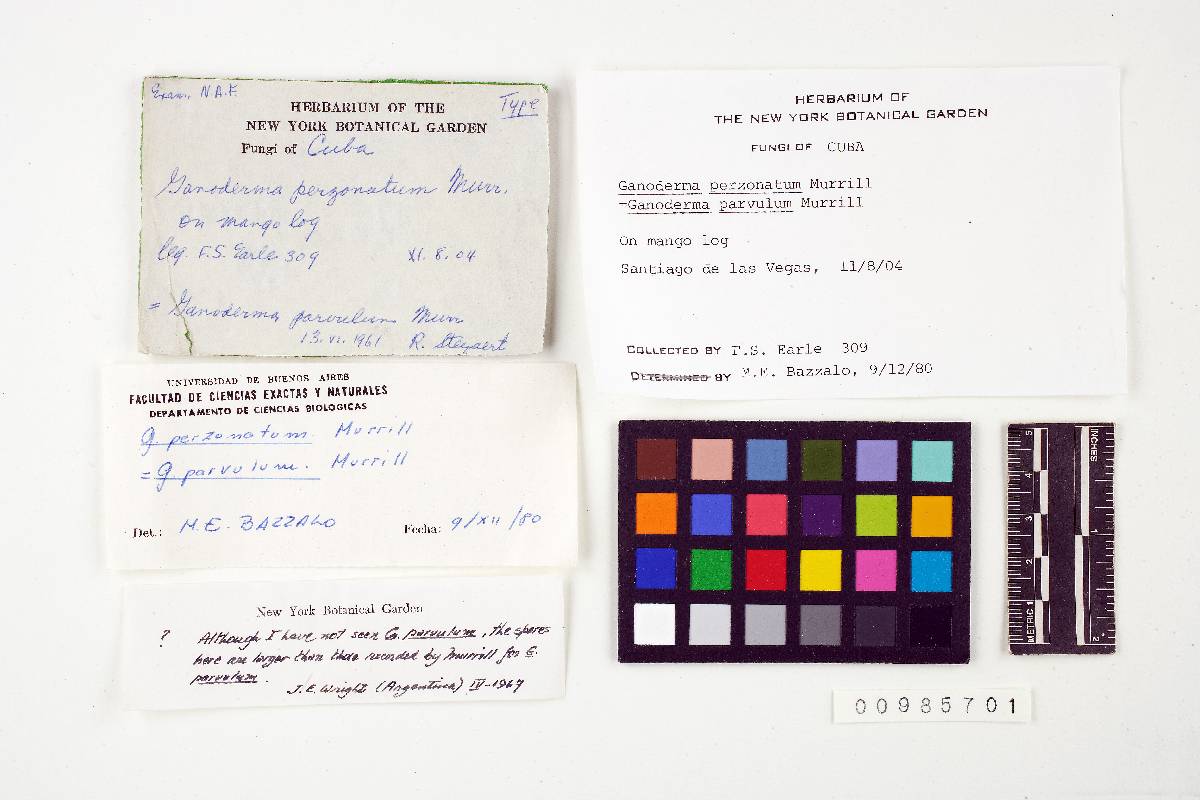 Exam. N.A.F.
Type
HERBARIUM OF THE
NEW YORK BOTANICAL GARDEN
Fungi of Cuba
Ganoderma perzonatum Murr.
on mango log
leg. F.S. Earle 309 XI. 8. 04
= Ganoderma parvulum Murr
13. VI. 1961 R. Steyaert
UNIVERSIDAD DE BUENOS AIRES
FACULTAD DE CIENCIAS EXACTAS Y NATURALES
DEPARTAMENTO DE CIENCIAS BIOLOGICAS
G. perzonatum. Murrill
= G parvulum. Murrill
Det.: M.E. BAZZALO Fecha: 9/XII/80
New York Botanical Garden
? Although I have not seen G. parvulum, the spores
here are larger than those recorded by Murrill for G.
parvulum.
J.E. Wright (Argentina) IV-1967
HERBARIUM OF
THE NEW YORK BOTANICAL GARDEN
FUNGI OF CUBA
Ganoderma perzonatum Murrill
=Ganoderma parvulum Murrill
On mango log
Santiago de las Vegas, 11/8/04
COLLECTED BY F.S. Earle 309
DETERMINED BY M.E. Bazzalo, 9/12/80
INCHES
1
2
METRIC 1
2
3
4
5
00985701